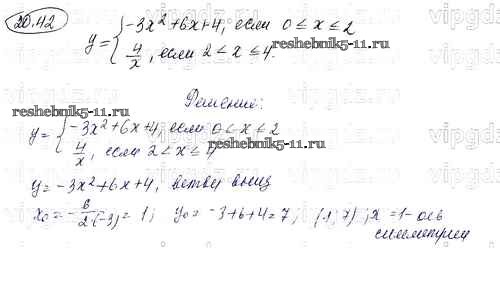 20.42
y = { -3x² + 6x + 4, если 0 ≤ x ≤ 2
4/x, если 2 < x ≤ 4.
reshebnik5-11.ru
Решение:
reshebnik5-11.ru
y = { -3x² + 6x + 4, если 0 ≤ x ≤ 2
4/x, если 2 < x ≤ 4
y = -3x² + 6x + 4, ветви вниз
x₀ = - 6/2·(-3) = 1; y₀ = -3+6+4 = 7; (1; 7); x = 1 - ось
симметрии